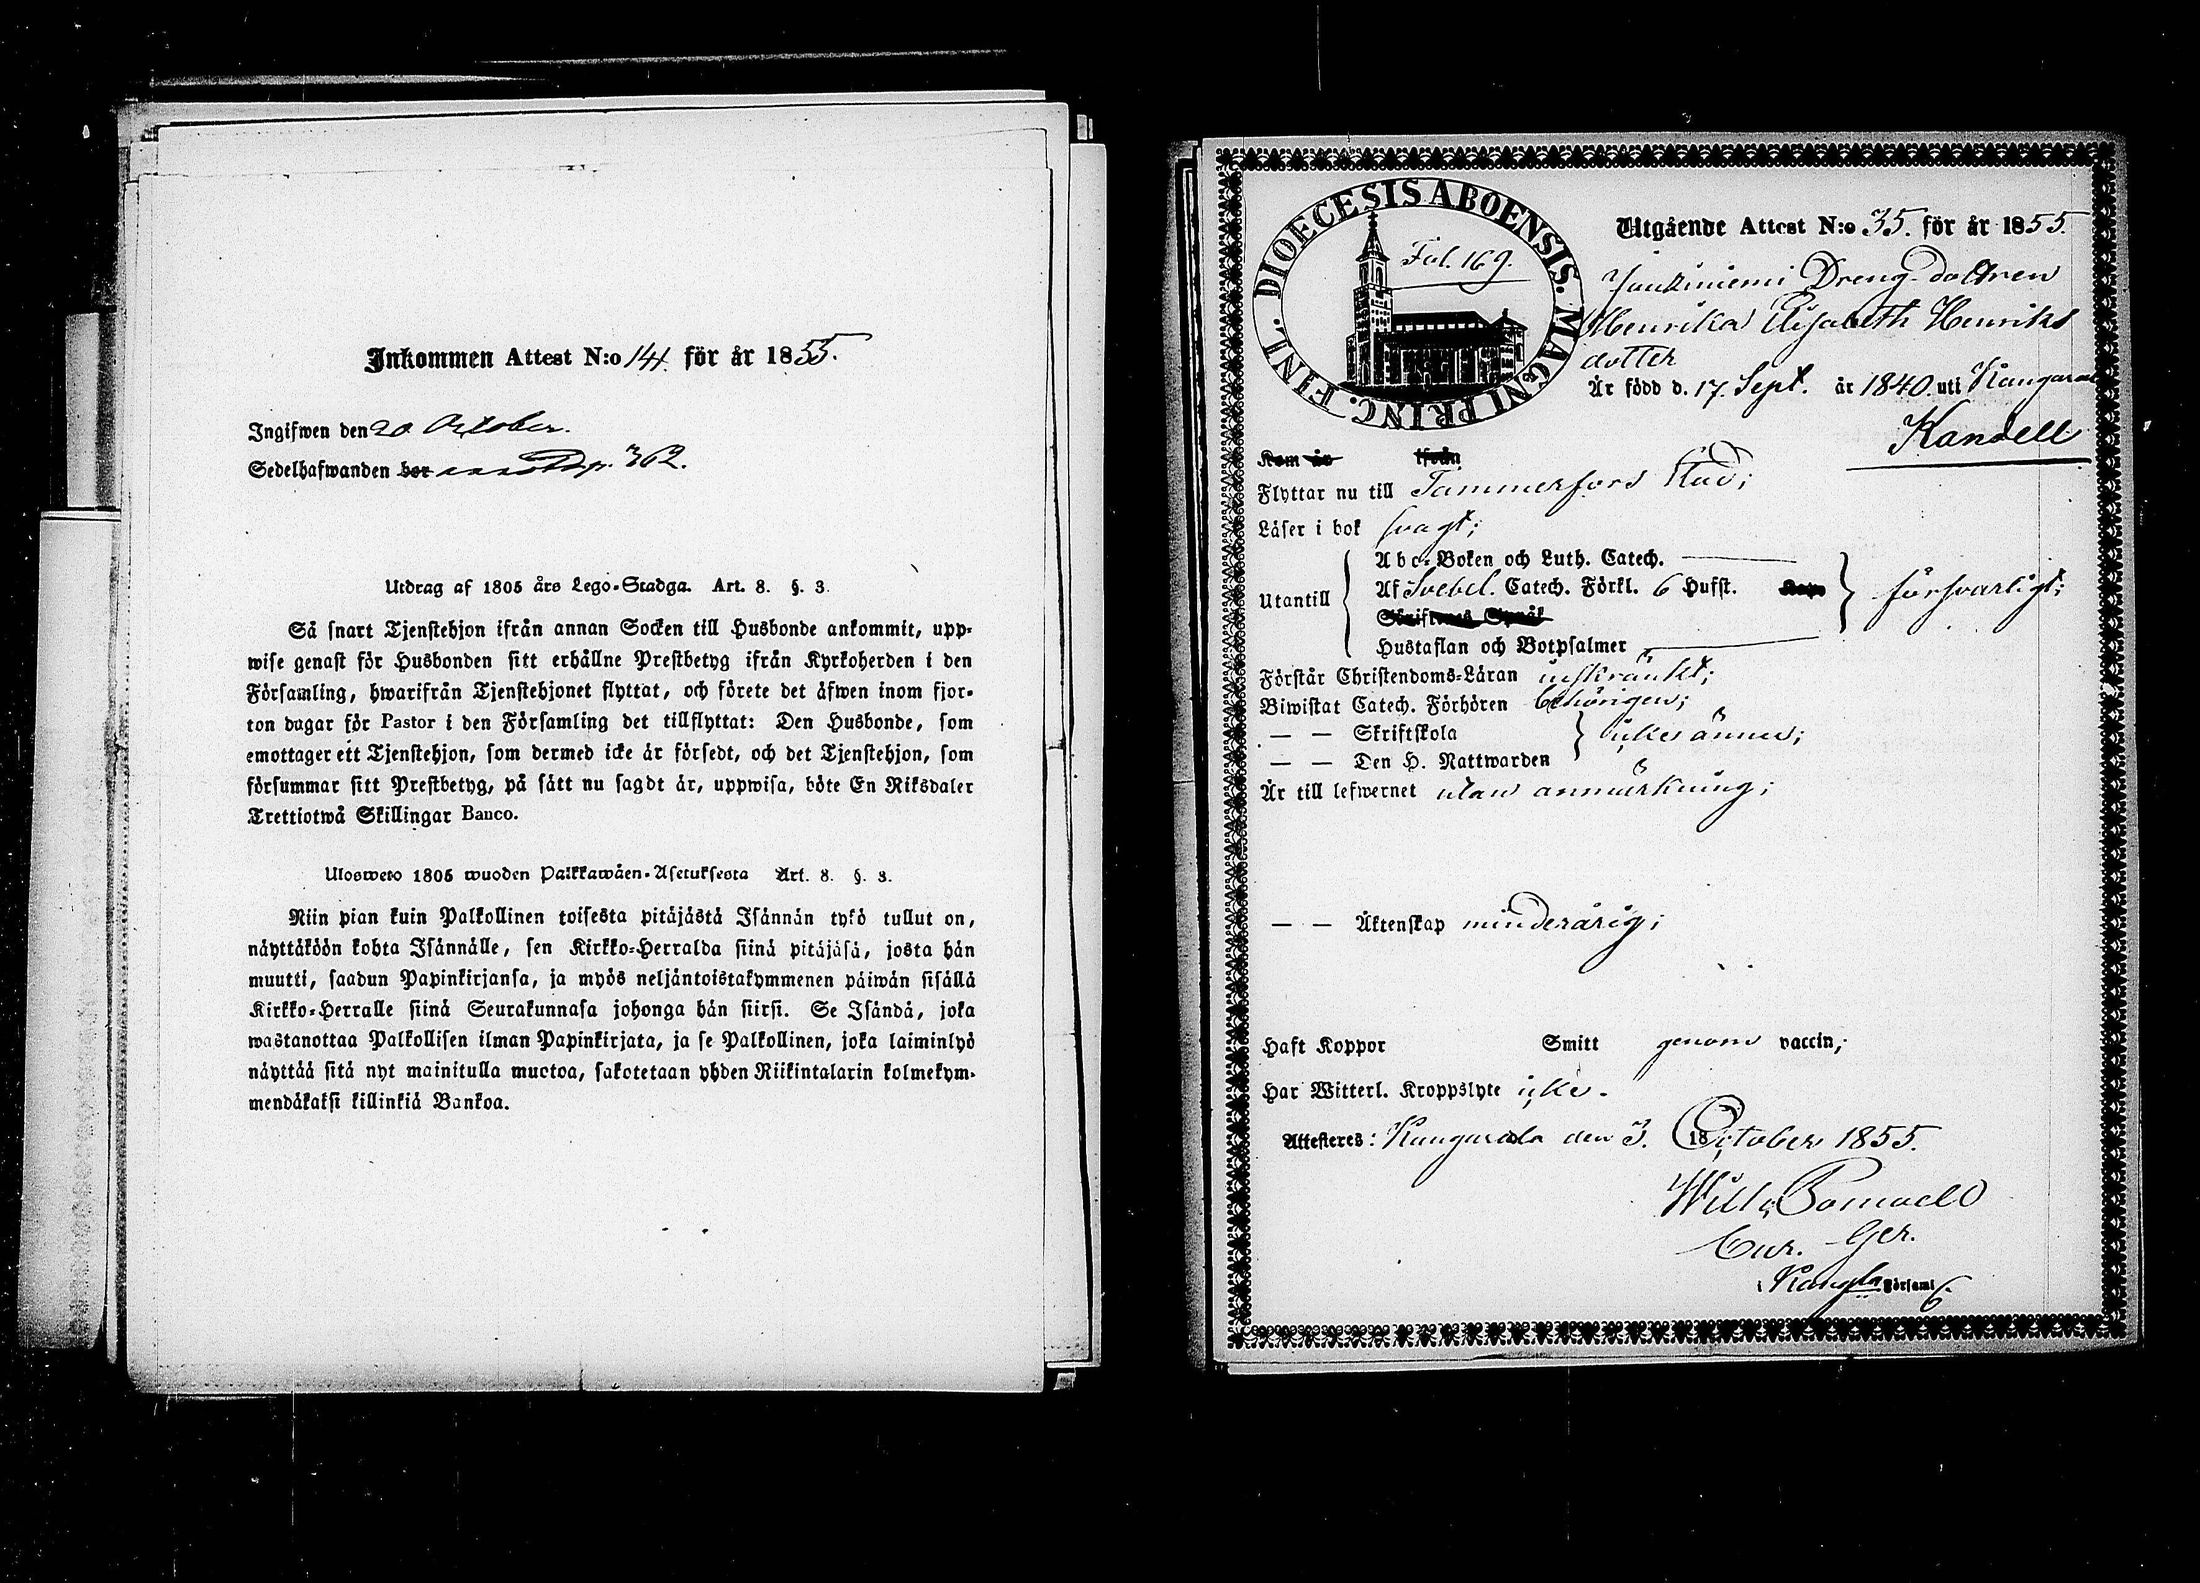 Inkommen Attest N:o 144 för år 1855.
Ingifwen den 20 October.
Sedelhafwanden bor p. 362.
Utdrag af 1805 års Lego-Stadga. Art. 8. §. 3.
Så snart Tjenstehjon ifrån annan Socken till Husbonde ankommit, upp-
wise genast för Husbonden sitt erhållne Prestbetyg ifrån Kyrkoherden i den
Församling, hwarifrån Tjenstehjonet flyttat, och förete det äfwen inom fjor-
ton dagar för Pastor i den Församling det tillflyttat: Den Husbonde, som
emottager ett Tjenstehjon, som dermed icke är försedt, och det Tjenstehjon, som
försummar sitt Prestbetyg, på sätt nu sagdt är, uppwisa, böte En Riksdaler
Trettiotwå Skillingar Banco.
Ulosweto 1805 wuoden Palkkawäen-Asetuksesta Art. 8. §. 3.
Niin pian kuin Palkollinen toisesta pitäjästä Isännän tykö tullut on,
näyttäköön kohta Isännälle, sen Kirkko-Herralda siinä pitäjäsä, josta hän
muutti, saadun Papinkirjansa, ja myös neljäntoistakymmenen päiwän sisällä
Kirkko-Herralle siinä Seurakunnasa johonga hän siirsi. Se Isändä, joka
wastanottaa Palkollisen ilman Papinkirjata, ja se Palkollinen, joka laiminlyö
näyttää sitä nyt mainitulla muotoa, sakotetaan yhden Riikintalarin kolmekym-
mendäkaksi killinkiä Bankoa.
DIOECESIS ABOENSIS. MAGNI PRINC. FINL.
Fol. 169.
Utgående Attest N:o 35. för år 1855.
Dreng-dottren
Henrika Elisabeth Henriks
dotter
Är född d. 17. Sept. år 1840. uti Kangasala
Kandell
Kom år ifrån
Flyttar nu till Tammerfors Stad;
Läser i bok svagt;
Abc-Boken och Luth. Catech.
Utantill Af Svebel. Catech. Förkl. 6 Hufst. Kap. försvarligt;
Skriftenes Språk
Hustaflan och Botpsalmer
Förstår Christendoms-Läran inskränkt;
Biwistat Catech. Förhören behörigen;
— — Skriftskola icke ännu;
— — Den H. Nattwarden
Är till lefwernet utan anmärkning;
— — Äktenskap minderårig;
Haft Koppor Smitt genom vaccin;
Har Witterl. Kroppslyte icke.
Attesteres: Kangasala den 3. 18 October 1855.
Cur. Ger.
Kangla Församl